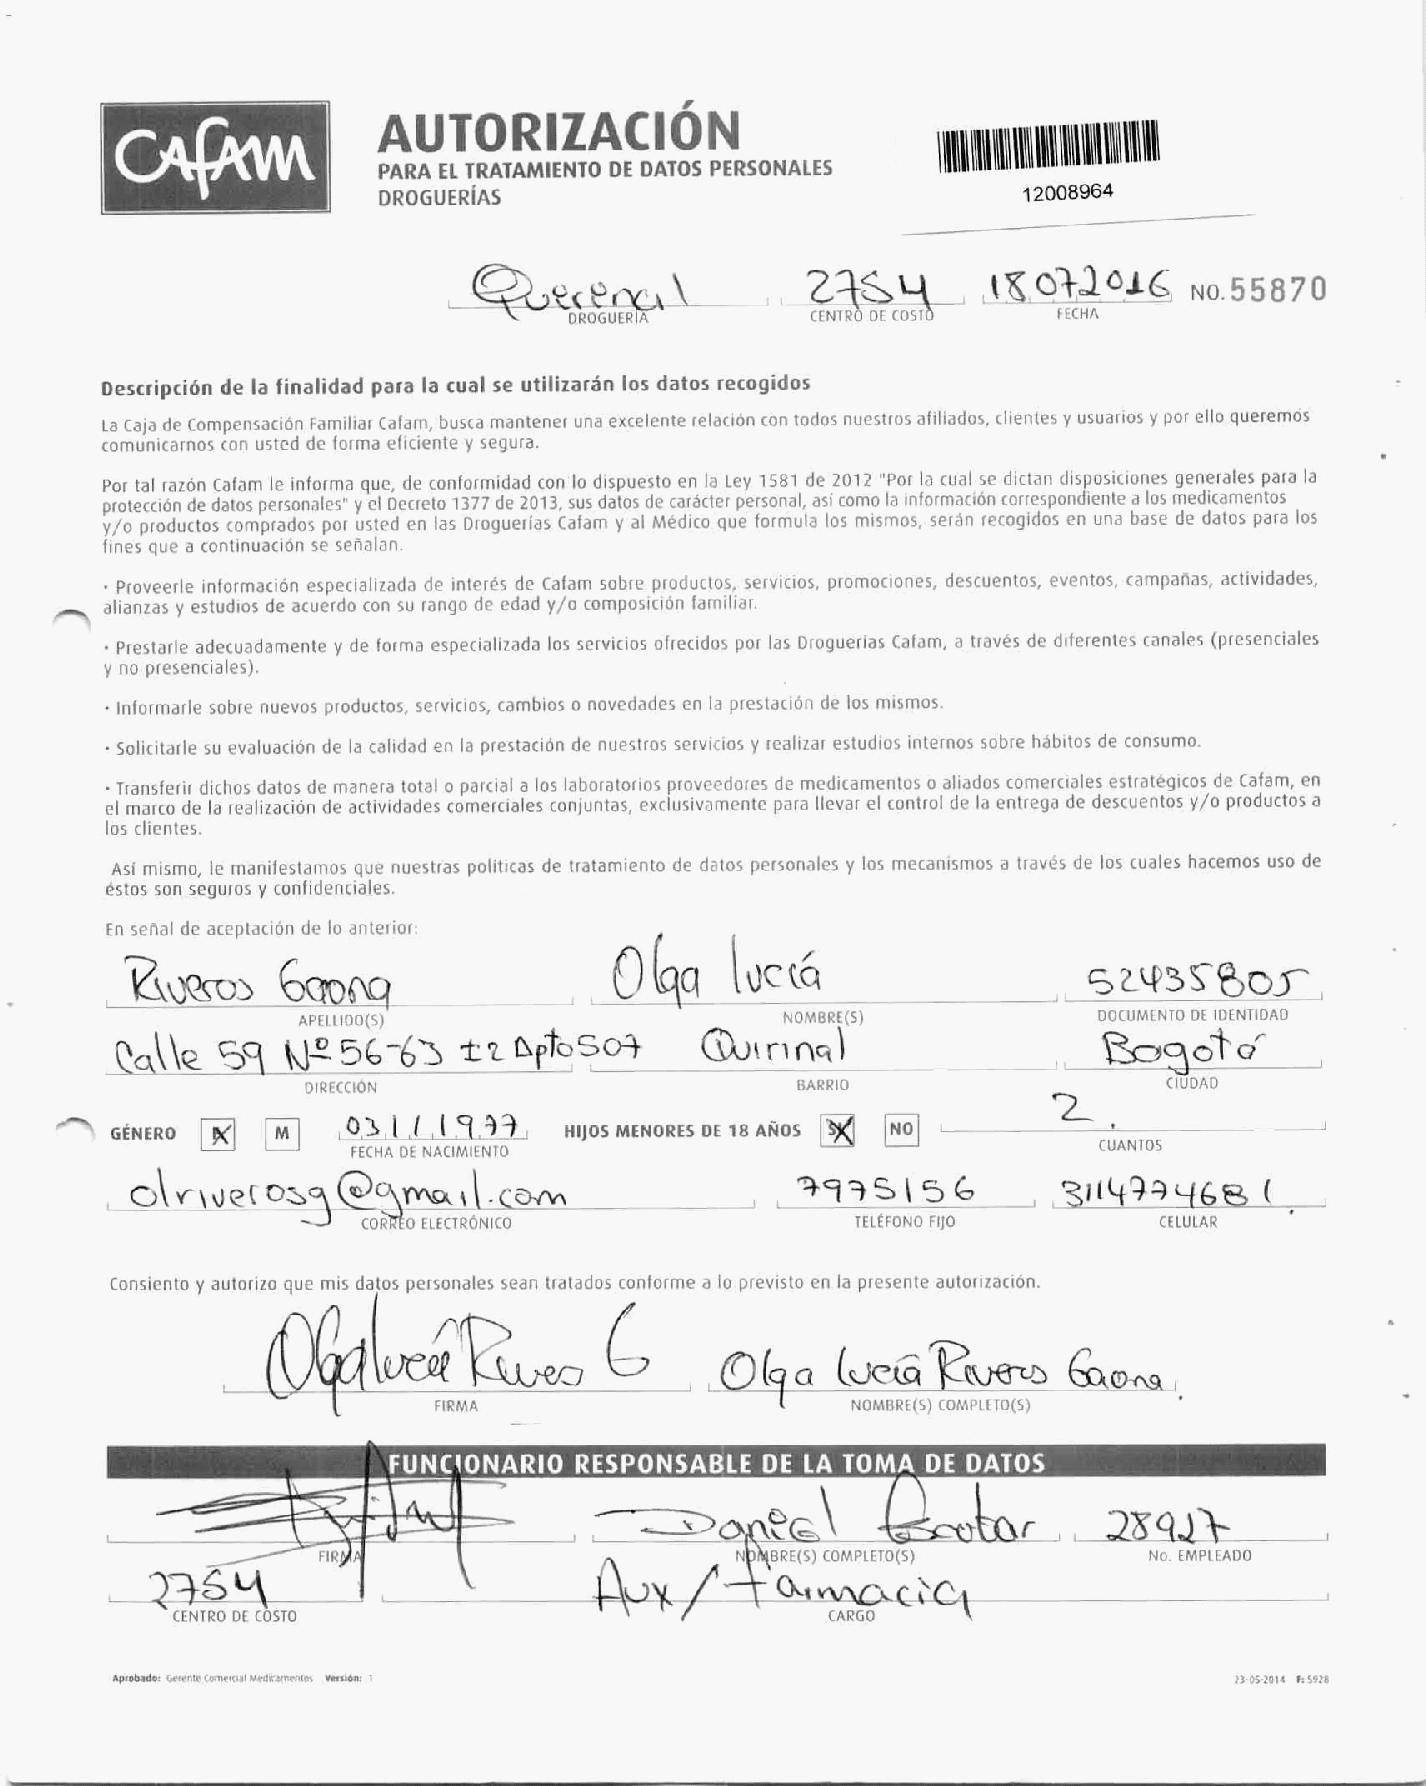 CAFAM
AUTORIZACIÓN
PARA EL TRATAMIENTO DE DATOS PERSONALES
DROGUERÍAS
12008964
Querencial 2754 18072016 NO. 55870
DROGUERÍA CENTRO DE COSTO FECHA
Descripción de la finalidad para la cual se utilizarán los datos recogidos
La Caja de Compensación Familiar Cafam, busca mantener una excelente relación con todos nuestros afiliados, clientes y usuarios y por ello queremos
comunicarnos con usted de forma eficiente y segura.
Por tal razón Cafam le informa que, de conformidad con lo dispuesto en la Ley 1581 de 2012 "Por la cual se dictan disposiciones generales para la
protección de datos personales" y el Decreto 1377 de 2013, sus datos de carácter personal, así como la información correspondiente a los medicamentos
y/o productos comprados por usted en las Droguerías Cafam y al Médico que formula los mismos, serán recogidos en una base de datos para los
fines que a continuación se señalan.
· Proveerle información especializada de interés de Cafam sobre productos, servicios, promociones, descuentos, eventos, campañas, actividades,
alianzas y estudios de acuerdo con su rango de edad y/o composición familiar.
· Prestarle adecuadamente y de forma especializada los servicios ofrecidos por las Droguerías Cafam, a través de diferentes canales (presenciales
y no presenciales).
· Informarle sobre nuevos productos, servicios, cambios o novedades en la prestación de los mismos.
· Solicitarle su evaluación de la calidad en la prestación de nuestros servicios y realizar estudios internos sobre hábitos de consumo.
· Transferir dichos datos de manera total o parcial a los laboratorios proveedores de medicamentos o aliados comerciales estratégicos de Cafam, en
el marco de la realización de actividades comerciales conjuntas, exclusivamente para llevar el control de la entrega de descuentos y/o productos a
los clientes.
Así mismo, le manifestamos que nuestras políticas de tratamiento de datos personales y los mecanismos a través de los cuales hacemos uso de
éstos son seguros y confidenciales.
En señal de aceptación de lo anterior:
Riveros Gaona Olga lucía 52435805
APELLIDO(S) NOMBRE(S) DOCUMENTO DE IDENTIDAD
Calle 59 Nº 56-63 t2 Apto 507 Quirinal Bogotá
DIRECCIÓN BARRIO CIUDAD
GÉNERO X M 03111977 HIJOS MENORES DE 18 AÑOS SX NO 2.
FECHA DE NACIMIENTO CUANTOS
olriverosg@gmail.com 7975156 3114774681
CORREO ELECTRÓNICO TELÉFONO FIJO CELULAR
Consiento y autorizo que mis datos personales sean tratados conforme a lo previsto en la presente autorización.
Olga lucía Riveros G Olga lucía Riveros Gaona.
FIRMA NOMBRE(S) COMPLETO(S)
FUNCIONARIO RESPONSABLE DE LA TOMA DE DATOS
Daniel Escobar 28927
FIRMA NOMBRE(S) COMPLETO(S) No. EMPLEADO
2754 Aux/Farmacia
CENTRO DE COSTO CARGO
Aprobado: Gerente Comercial Medicamentos Versión: 1 23-05-2014 F: 5928